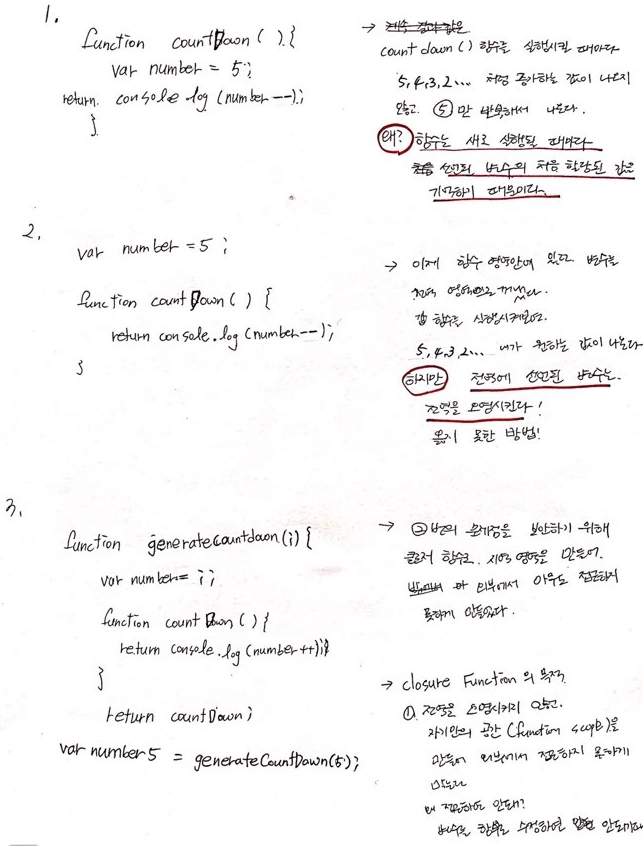 1.
function countDown ( ) {
var number = 5;
return console.log (number--);
}
→
count down ( ) 함수를 실행시킬 때마다
5, 4, 3, 2... 처럼 감소하는 값이 나오지
않고 ⑤만 반복해서 나온다.
왜? 함수는 새로 실행될 때마다
선언된 변수의 처음 할당된 값을
기억하기 때문이다.
2.
var number = 5 ;
function countDown ( ) {
return console.log (number--);
}
→ 이제 함수 영역안에 있던 변수를
전역 영역으로 꺼냈다.
함수를 실행시켜보면
5, 4, 3, 2... 내가 원하는 값이 나온다
하지만 전역에 선언된 변수는
전역을 오염시킨다!
옳지 못한 방법!
3.
function generatecountdown(i) {
var number = i ;
function countDown ( ) {
return console.log (number++);}
}
return countDown ;
var number5 = generateCountDown(5);
→ ②번의 문제점을 보안하기 위해
클로저 함수로 지역 영역을 만들어
외부에서 아무도 접근하지
못하게 만들었다.
→ closure Function 의 목적
①. 전역을 오염시키지 않고
자기만의 공간 (function scope)을
만들어 외부에서 접근하지 못하게
만든다
왜 접근하면 안돼?
변수나 함수를 수정하면 안되니까